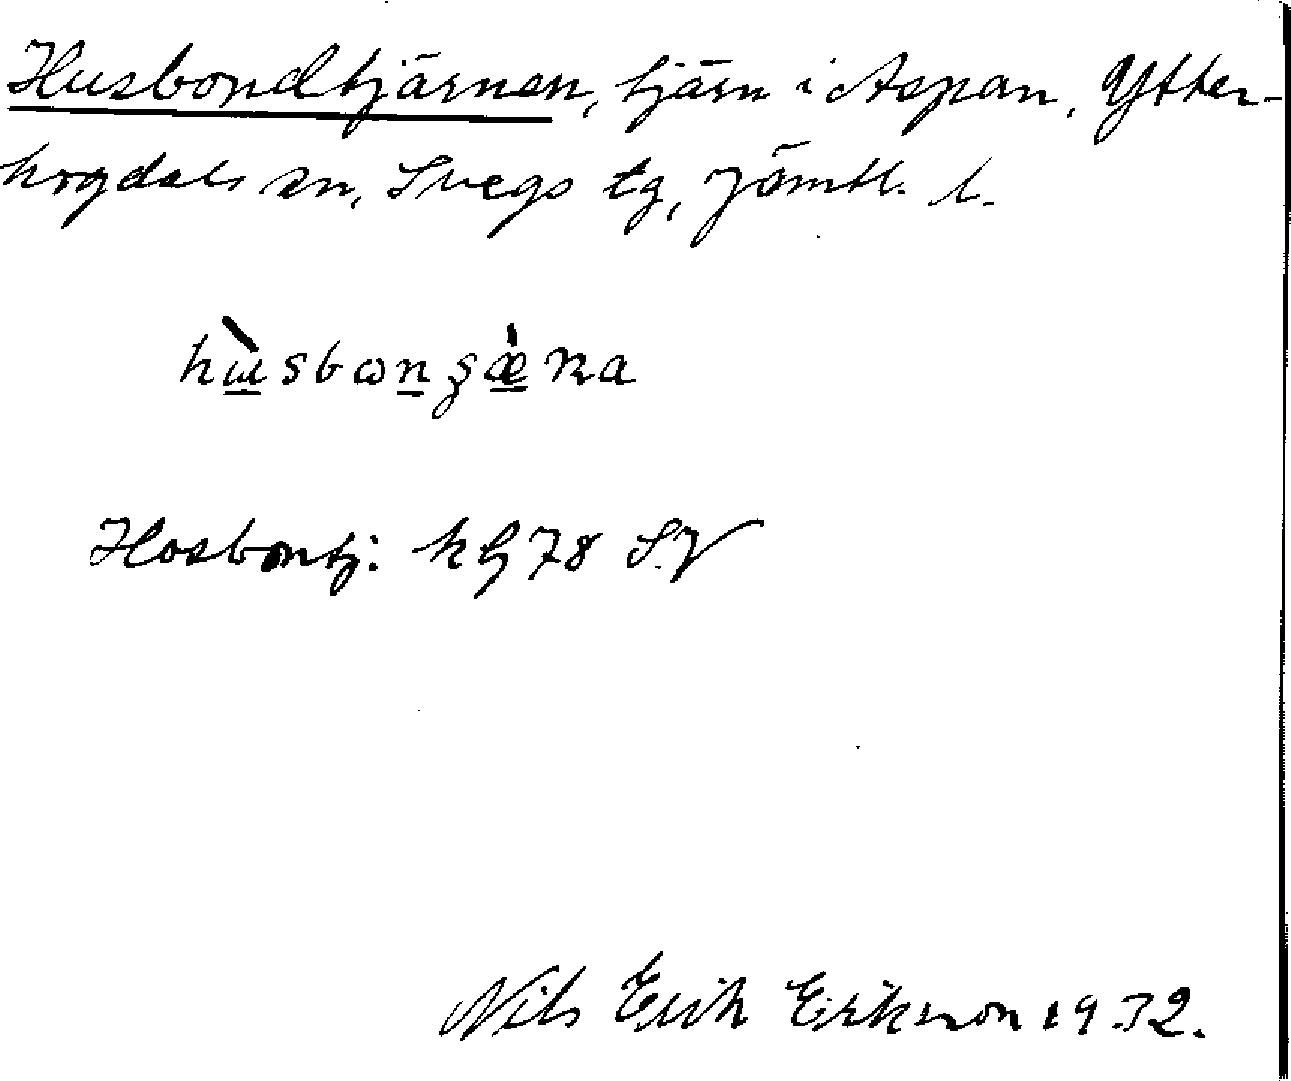 Husbondtjärnen, tjärn i Aspan, Ytter-
hogdals sn, Svegs tg, Jämtl. l.
hɯ̀sbωnʂæ̀ɴa
Hosbontj: kG 78 SV
Nils Erik Erikson 1932.